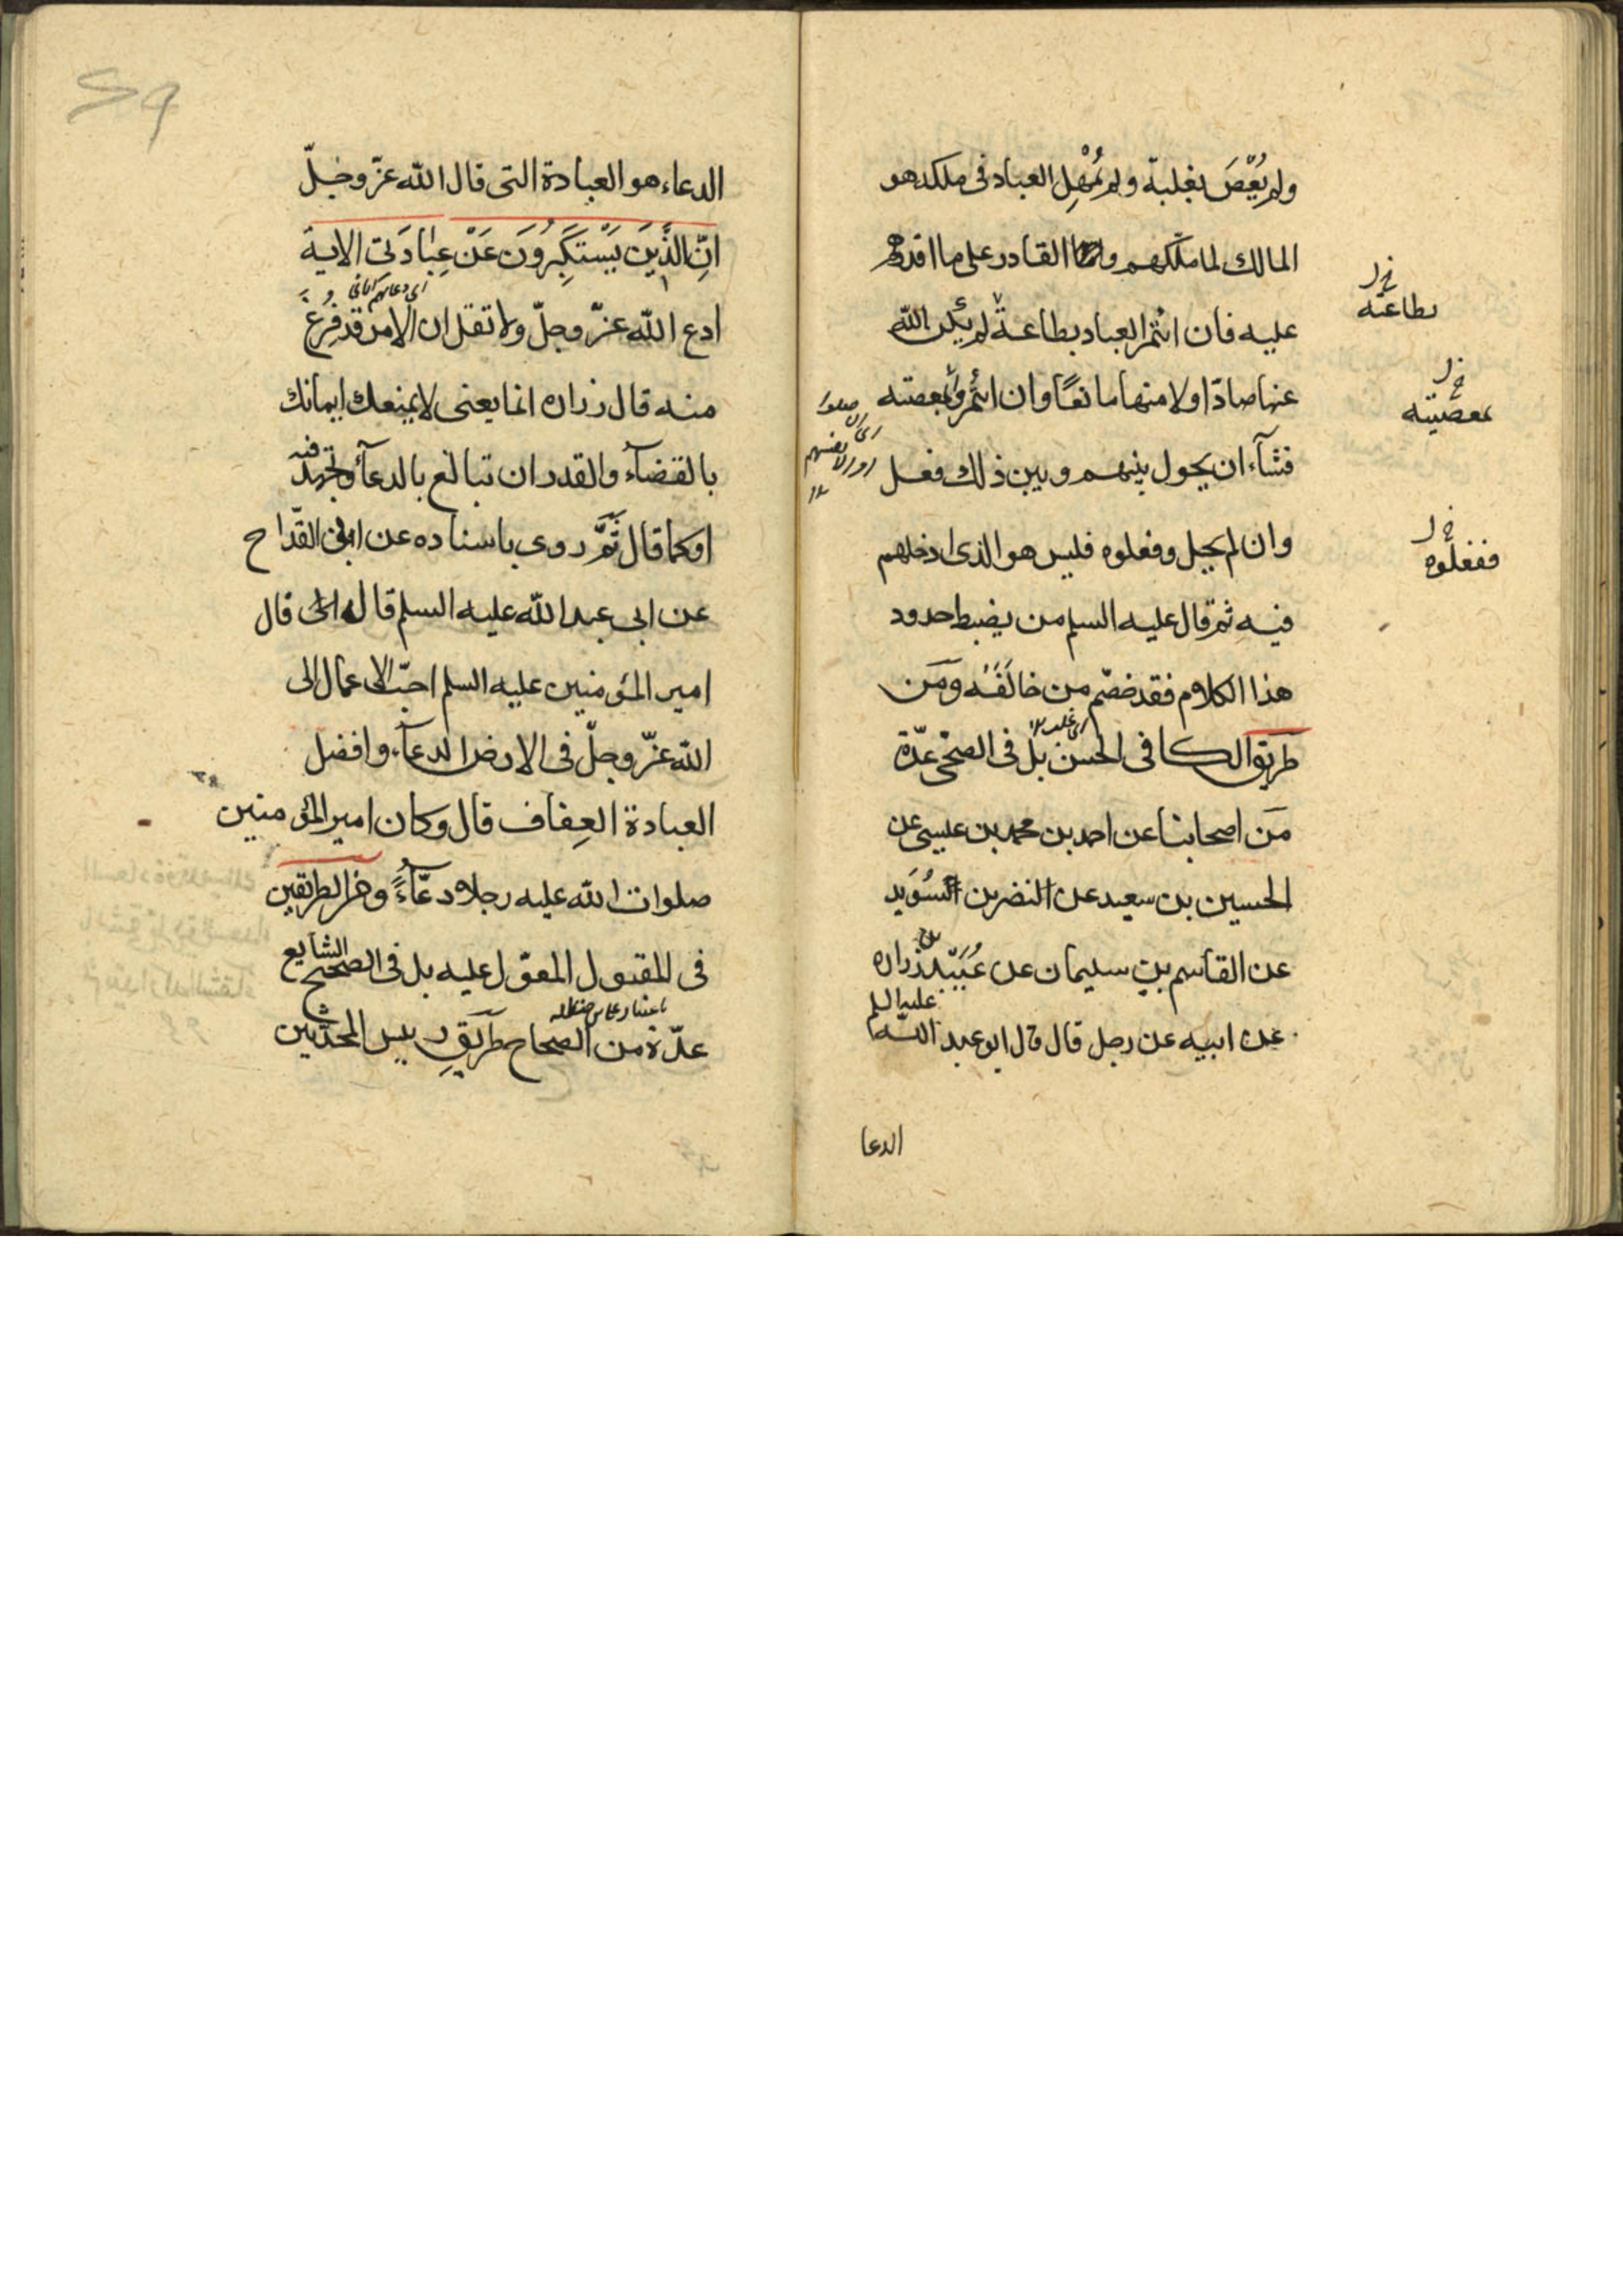 ولم يُعْصَ بغلبة ولم يُهْمِل العباد فى ملكه هو
المالك لما ملكهم والقادر على ما اقدرهم
عليه فان ائتمر العباد بطاعة لم يكن الله
عنها صادّا ولا منها مانعًا وان ائتمروا بمعصيته
فشآء ان يحول بينهم وبين ذلك فعل
وان لم يحل وفعلوه فليس هو الذى ادخلهم
فيه ثم قال عليه السلم من يضبط حدود
هذا الكلام فقد خصم من خالَفَه ومَن
طريق الكافى الحسن بل فى الصحى عدّة
مَن اصحابنا عن احمد بن محمد بن عيسى عن
الحسين بن سعيد عن النضر بن السُوَيد
عن القاسم بن سليمان عن عُبَيْد بن زراره
عن ابيه عن رجل قال قال ابو عبد الله
عليه السلم
بطاعته
بمعصيته
ففعلوه
الدعا
الدعاء هو العبادة التى قال الله عزّ وجلّ
انّ الَّذينَ يَسْتَكْبِرُونَ عَنْ عِبٰادَتى الاية
ادع الله عزّ وجلّ ولا تقل ان الامر قد فُرِغَ
منه قال زراره انما يعنى لا يمنعك ايمانك
بالقضآء والقدر ان تبالغ بالدعآء وتجتهد فيه
او كما قال ثمَّ روى باسناده عن ابن القدّاح
عن ابى عبد الله عليه السلم قال قال
امير المؤمنين عليه السلم احبّ الاعمال الى
الله عزّ وجلّ فى الارض الدعآء وافضل
العبادة العِفاف قال وكان امير المؤمنين
صلوات الله عليه رجلا دعّآءً ومن الطريقين
فى المقبول المعوّل عليه بل فى الصحيح الشايع
عدّة من الصحاح طريق رييس المحدّثين